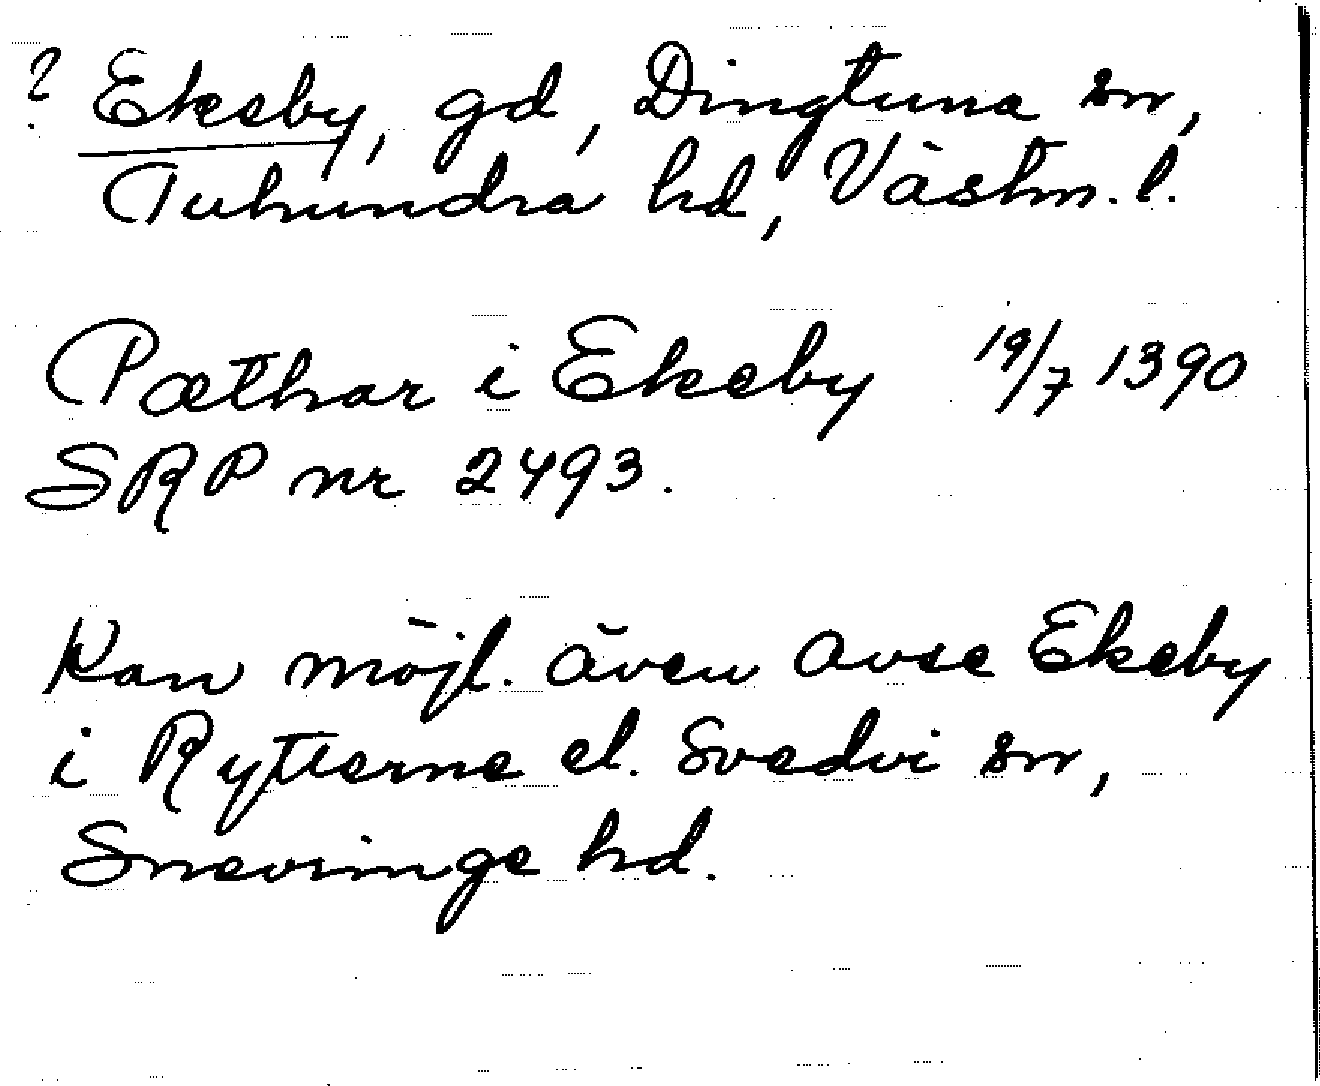 ? Ekeby, gd, Dingtuna sn,
Tuhundra hd, Västm. l.
Pæthar i Ekeby 19/7 1390
SRP nr 2493.
Kan möjl. även avse Ekeby
i Rytterne el. Svedvi sn,
Snevringe hd.